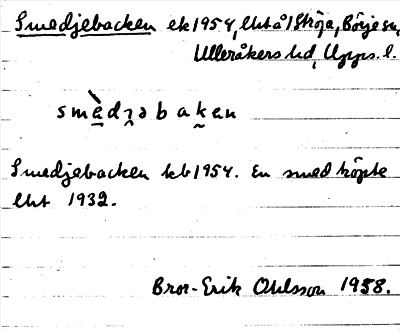 Smedjebacken ek 1954, lht å 1 Ströja, Börje sn,
Ulleråkers hd, Upps. l.
smèdjəbakən
Smedjebacken kb 1954. En smed köpte
lht 1932.
Bror-Erik Ohlsson 1958.